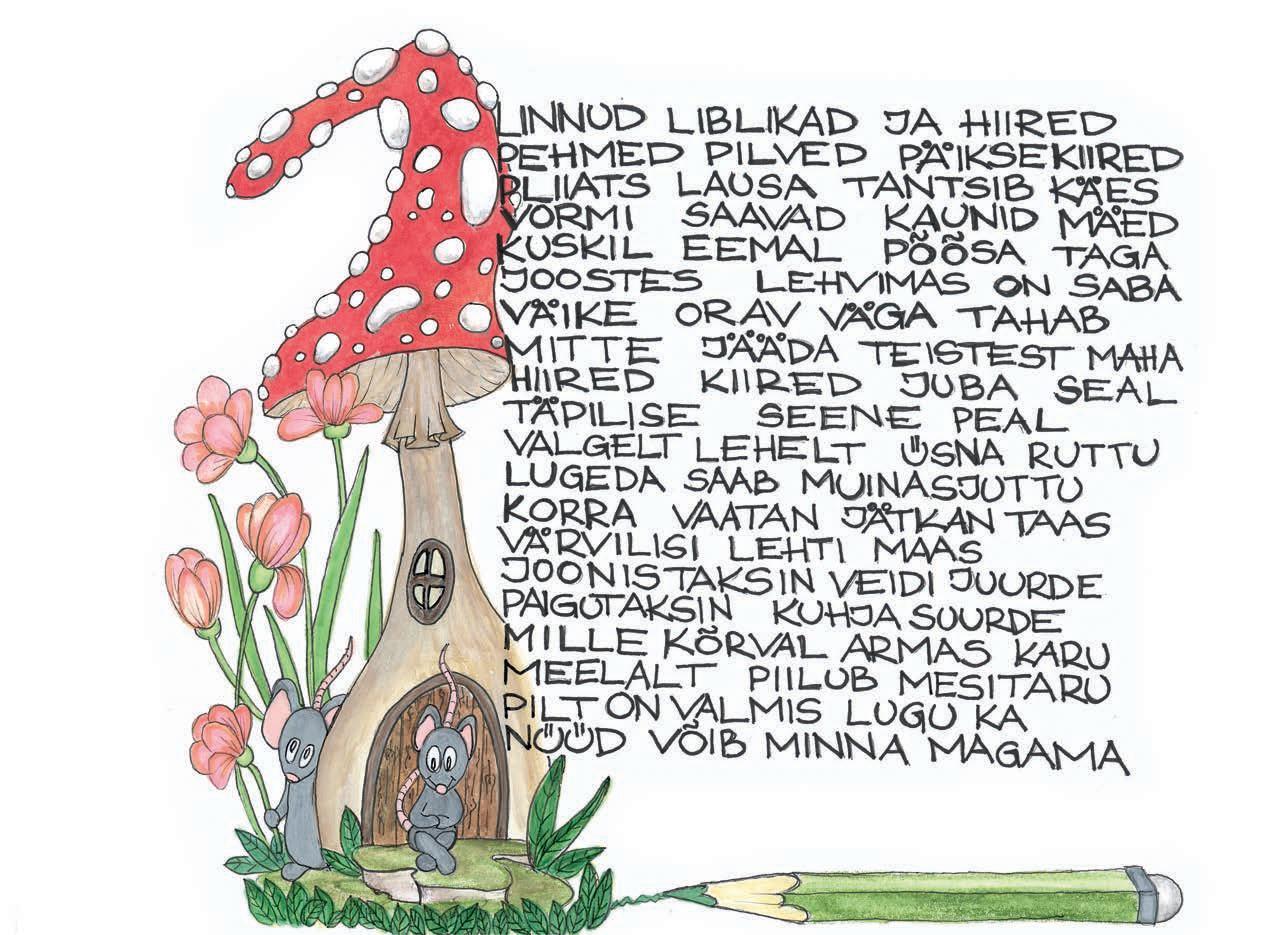 LINNUD LIBLIKAD JA HIIRED
PEHMED PILVED PÄIKSEKIIRED
PLIIATS LAUSA TANTSIB KÄES
VORMI SAAVAD KAUNID MÄED
KUSKIL EEMAL PÕÕSA TAGA
JOOSTES LEHVIMAS ON SABA
VÄIKE ORAV VÄGA TAHAB
MITTE JÄÄDA TEISTEST MAHA
HIIRED KIIRED JUBA SEAL
TÄPILISE SEENE PEAL
VALGELT LEHELT ÜSNA RUTTU
LUGEDA SAAB MUINASJUTTU
KORRA VAATAN JÄTKAN TAAS
VÄRVILISI LEHTI MAAS
JOONISTAKSIN VEIDI JUURDE
PAIGUTAKSIN KUHJA SUURDE
MILLE KÕRVAL ARMAS KARU
MEELALT PIILUB MESITARU
PILT ON VALMIS LUGU KA
NÜÜD VÕIB MINNA MAGAMA